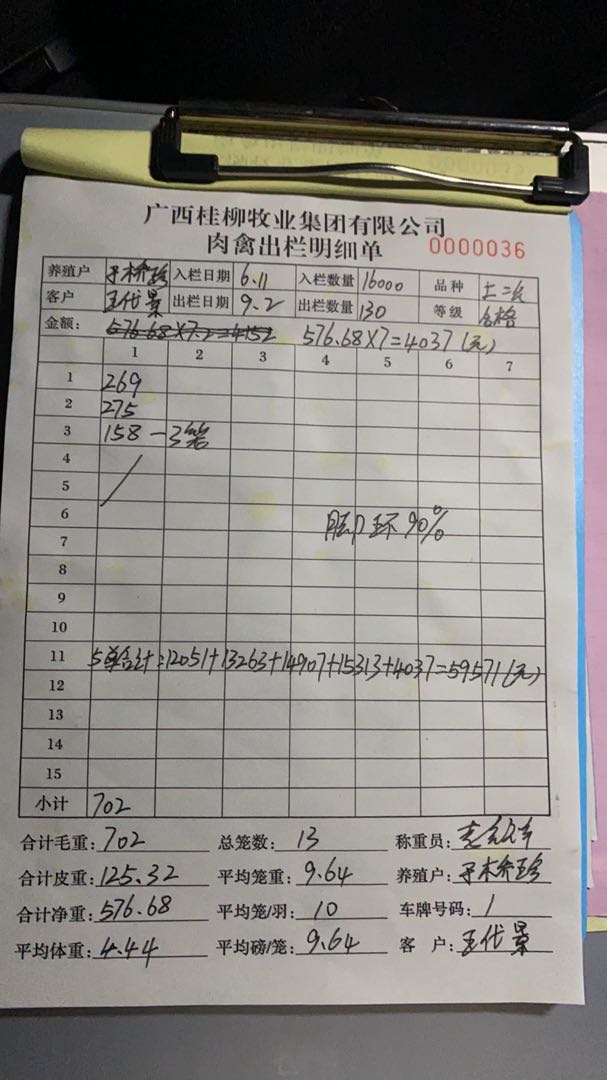 广西桂柳牧业集团有限公司
肉禽出栏明细单 0000036
养殖户 入栏日期 6.11 入栏数量 16000 品种 土二
客户 王代景 出栏日期 9.2 出栏数量 130 等级 合格
金额: 576.68×7.2=4152 576.68×7=4037(元)
1 2 3 4 5 6 7
1 269
2 275
3 158-3笼
4
5
6 脚环90%
7
8
9
10
11 5单合计:12051+13263+14907+15313+4037=59571(元)
12
13
14
15
小计 702
合计毛重: 702 总笼数: 13 称重员:
合计皮重: 125.32 平均笼重: 9.64 养殖户:
合计净重: 576.68 平均笼/羽: 10 车牌号码: 1
平均体重: 4.44 平均磅/笼: 9.64 客 户: 王代景